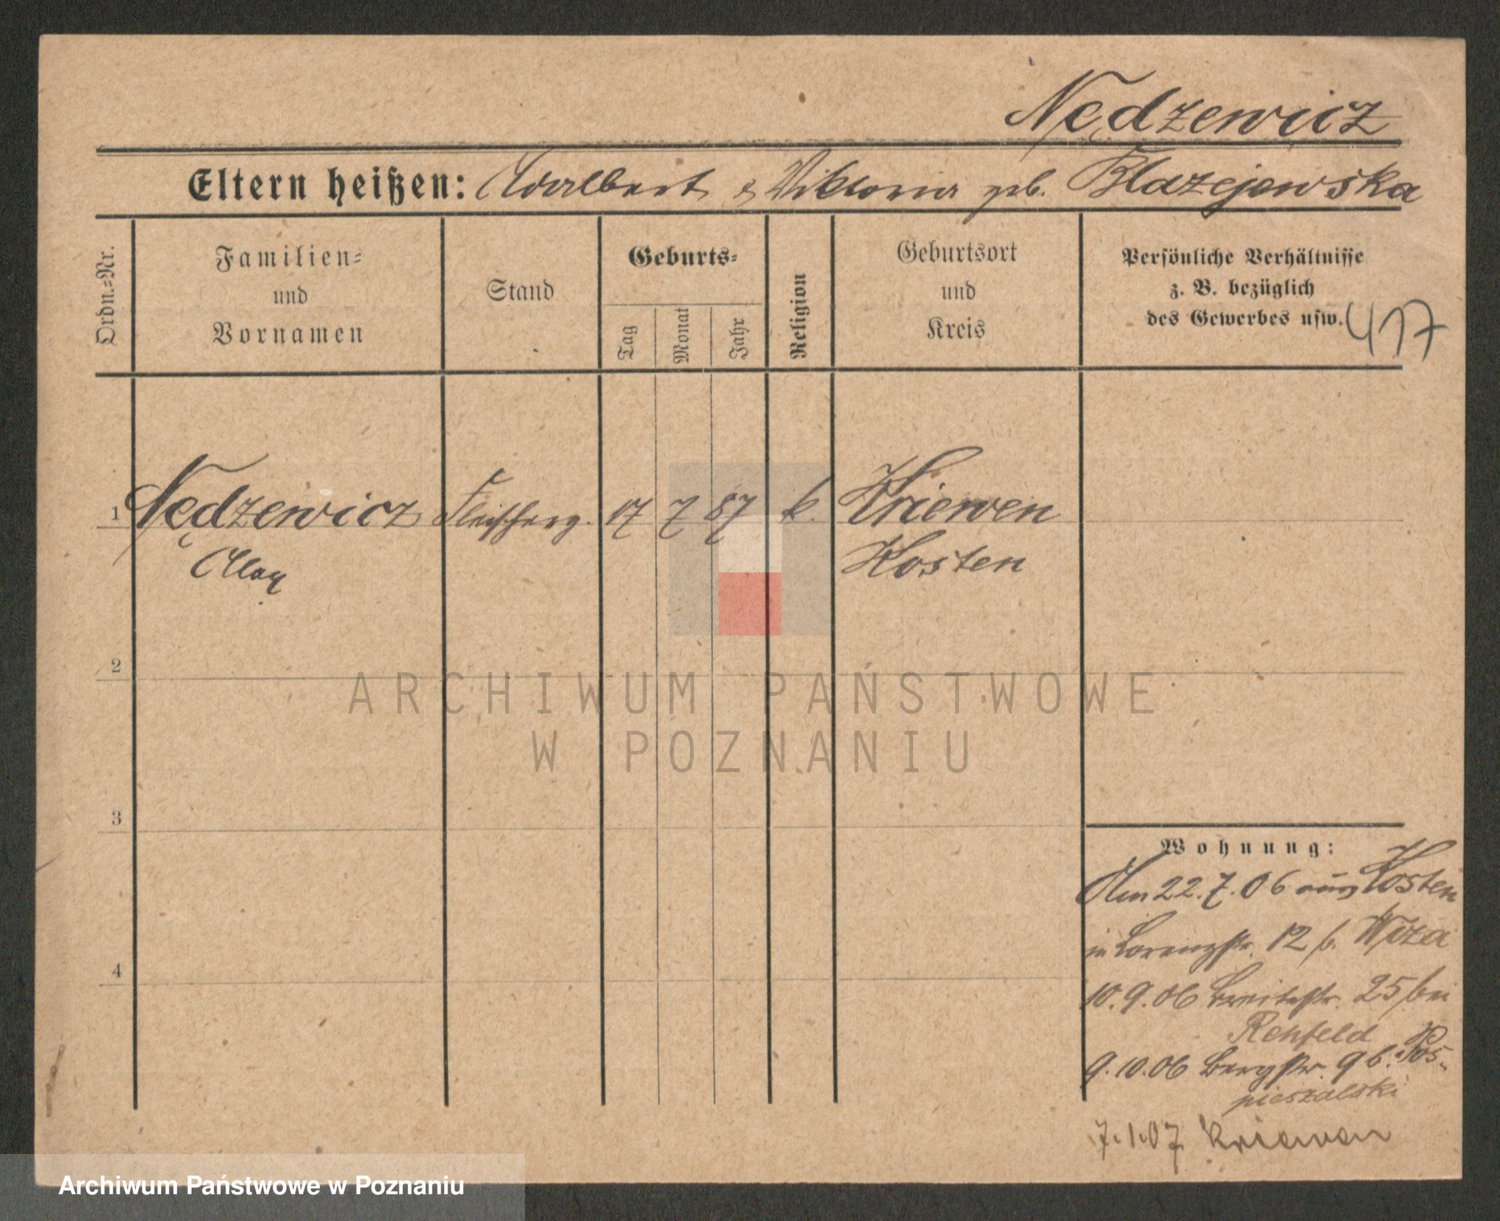 Nędzewicz
Eltern heißen: Adalbert & Viktoria geb. Blazejewska
Ordn.-Nr.
Familien-
und
Vornamen
Stand
Geburts-
Tag
Monat
Jahr
Religion
Geburtsort
und
Kreis
Persönliche Verhältnisse
z. B. bezüglich
des Gewerbes usw.
417
1 Nędzewicz Fleischerg. 17 7 87 k. Kriewen
Max Kosten
2
3
4
Wohnung:
Am 22.7.06 aus Kosten
in Lorenzstr. 12 b. Wiza
10.9.06 Breitestr. 25 bei
Rehfeld
9.10.06 Bergstr. 9 b. Pos-
pieszalski
7.1.07 Kriewen
ARCHIWUM PAŃSTWOWE
W POZNANIU
Archiwum Państwowe w Poznaniu